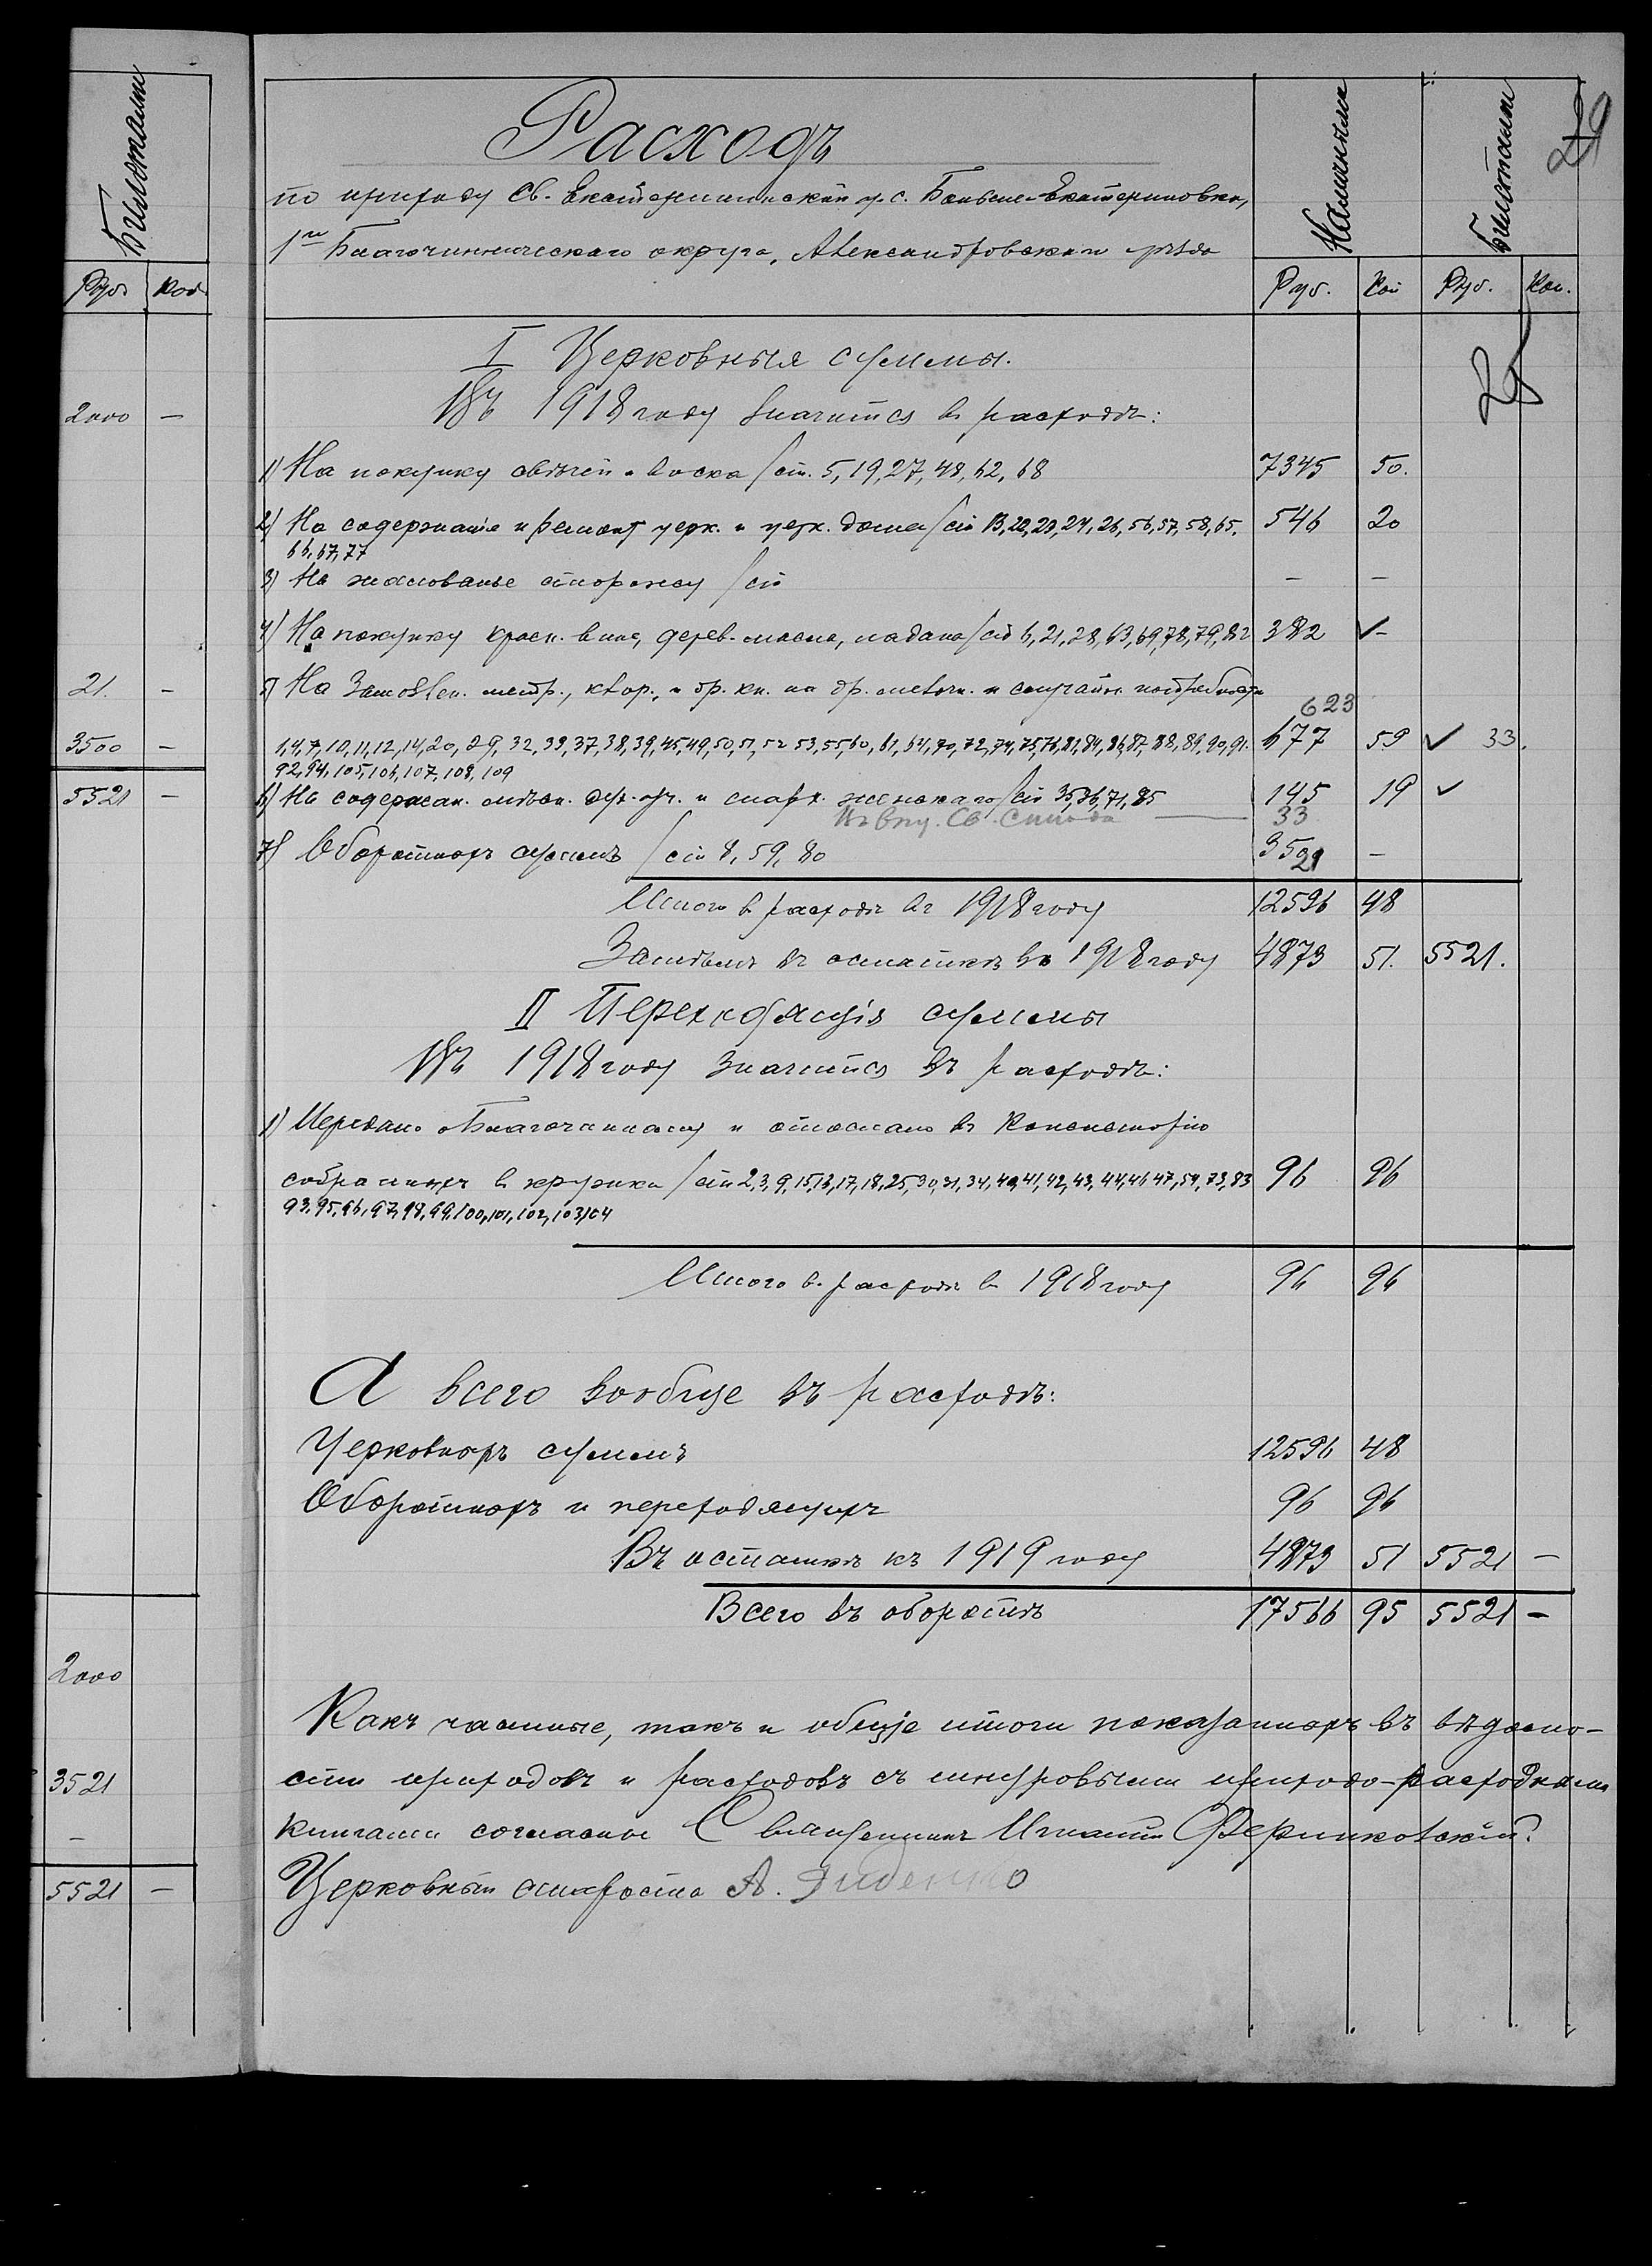 Билетами
Руб. Коп.
2000 —
21. —
3500 —
5521 —
2000
3521
—
5521 —
29
Расходъ
по приходу Св. Екатерининской ц. с. Больше-Екатериновки,
1го Благочинническаго округа, Александровскаго уѣзда
Наличными Билетами
Руб. Коп Руб. Коп.
I Церковныя суммы.
Въ 1918 году значится въ расходѣ:
1) На покупку свѣчей и воска /ст. 5, 19, 27, 48, 62, 68 7345 50.
2) На содержаніе и ремонт церк. и церк. дома /ст 13, 22, 23, 24, 26, 56, 57, 58, 65. 546 20
66, 67, 77
3) На жалованье сторожу /ст — —
4) На покупку красн. вина, дерев. масла, ладана /ст 6, 21, 28, 63, 69, 78, 79, 82 382 —
5) На метр., и др. кн. на др. мелочн. и случайн. потребности
623
1, 4, 7, 10, 11, 12, 14, 20, 29, 32, 33, 37, 38, 39, 45, 49, 50, 51, 52 53, 55, 60, 61, 64, 70, 72, 74, 75, 76, 81, 84, 86, 87, 88, 89, 90, 91. 677 59 33.
92, 94, 105, 106, 107, 108, 109
6) На содержан. дух. уч. и епарх. женскаго /ст 35, 36, 71, 85 145 19
Св. Синода 33
7) Оборотныхъ суммъ /ст 8, 59, 80 3521 —
Итого въ расходѣ въ 1918 году 12596 48
Затѣмъ въ остаткѣ въ 1918 году 4873 51. 5521.
II Переходящія суммы
Въ 1918 году значится въ расходѣ:
1) Передано Благочинному и отослано въ Консисторію
собранныхъ въ кружки /ст 2, 3, 9, 15, 16, 17, 18, 25, 30, 31, 34, 40, 41, 42, 43, 44, 46 47, 54, 73, 83 96 96
93, 95, 96, 97, 98, 99, 100, 101, 102, 103, 104
Итого въ расходѣ въ 1918 году 96 96
А всего вообще въ расходѣ:
Церковныхъ суммъ 12596 48
Оборотныхъ и переходящихъ 96 96
Въ остаткѣ къ 1919 году 4873 51 5521 —
Всего въ оборотѣ 17566 95 5521 —
Какъ частные, такъ и общіе итоги показанныхъ въ вѣдомо-
сти приходовъ и расходовъ съ шнуровыми приходо-расходными
книгами согласны Священникъ Игнатій
Церковный староста А. Диденко